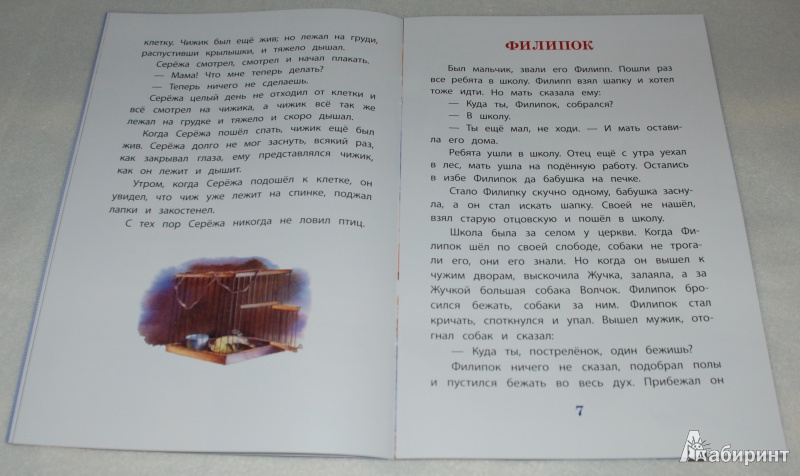 клетку. Чижик был ещё жив; но лежал на груди,
распустивши крылышки, и тяжело дышал.
Серёжа смотрел, смотрел и начал плакать.
— Мама! Что мне теперь делать?
— Теперь ничего не сделаешь.
Серёжа целый день не отходил от клетки и
всё смотрел на чижика, а чижик всё так же
лежал на грудке и тяжело и скоро дышал.
Когда Серёжа пошёл спать, чижик ещё был
жив. Серёжа долго не мог заснуть, всякий раз,
как закрывал глаза, ему представлялся чижик,
как он лежит и дышит.
Утром, когда Серёжа подошёл к клетке, он
увидел, что чиж уже лежит на спинке, поджал
лапки и закостенел.
С тех пор Серёжа никогда не ловил птиц.
ФИЛИПОК
Был мальчик, звали его Филипп. Пошли раз
все ребята в школу. Филипп взял шапку и хотел
тоже идти. Но мать сказала ему:
— Куда ты, Филипок, собрался?
— В школу.
— Ты ещё мал, не ходи. — И мать остави-
ла его дома.
Ребята ушли в школу. Отец ещё с утра уехал
в лес, мать ушла на подённую работу. Остались
в избе Филипок да бабушка на печке.
Стало Филипку скучно одному, бабушка засну-
ла, а он стал искать шапку. Своей не нашёл,
взял старую отцовскую и пошёл в школу.
Школа была за селом у церкви. Когда Фи-
липок шёл по своей слободе, собаки не трога-
ли его, они его знали. Но когда он вышел к
чужим дворам, выскочила Жучка, залаяла, а за
Жучкой большая собака Волчок. Филипок бро-
сился бежать, собаки за ним. Филипок стал
кричать, споткнулся и упал. Вышел мужик, ото-
гнал собак и сказал:
— Куда ты, пострелёнок, один бежишь?
Филипок ничего не сказал, подобрал полы
и пустился бежать во весь дух. Прибежал он
7
Лабиринт